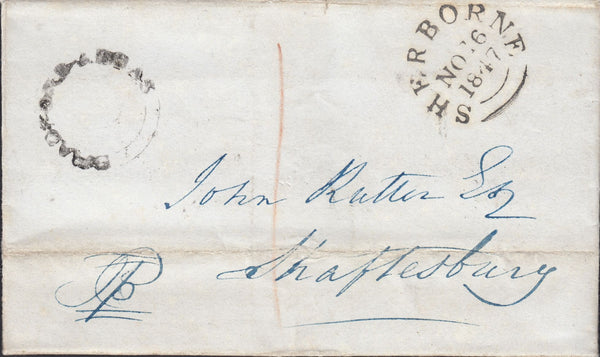 SHERBORNE
NO 16
1847
1
John Rutter Esq
Shaftesbury